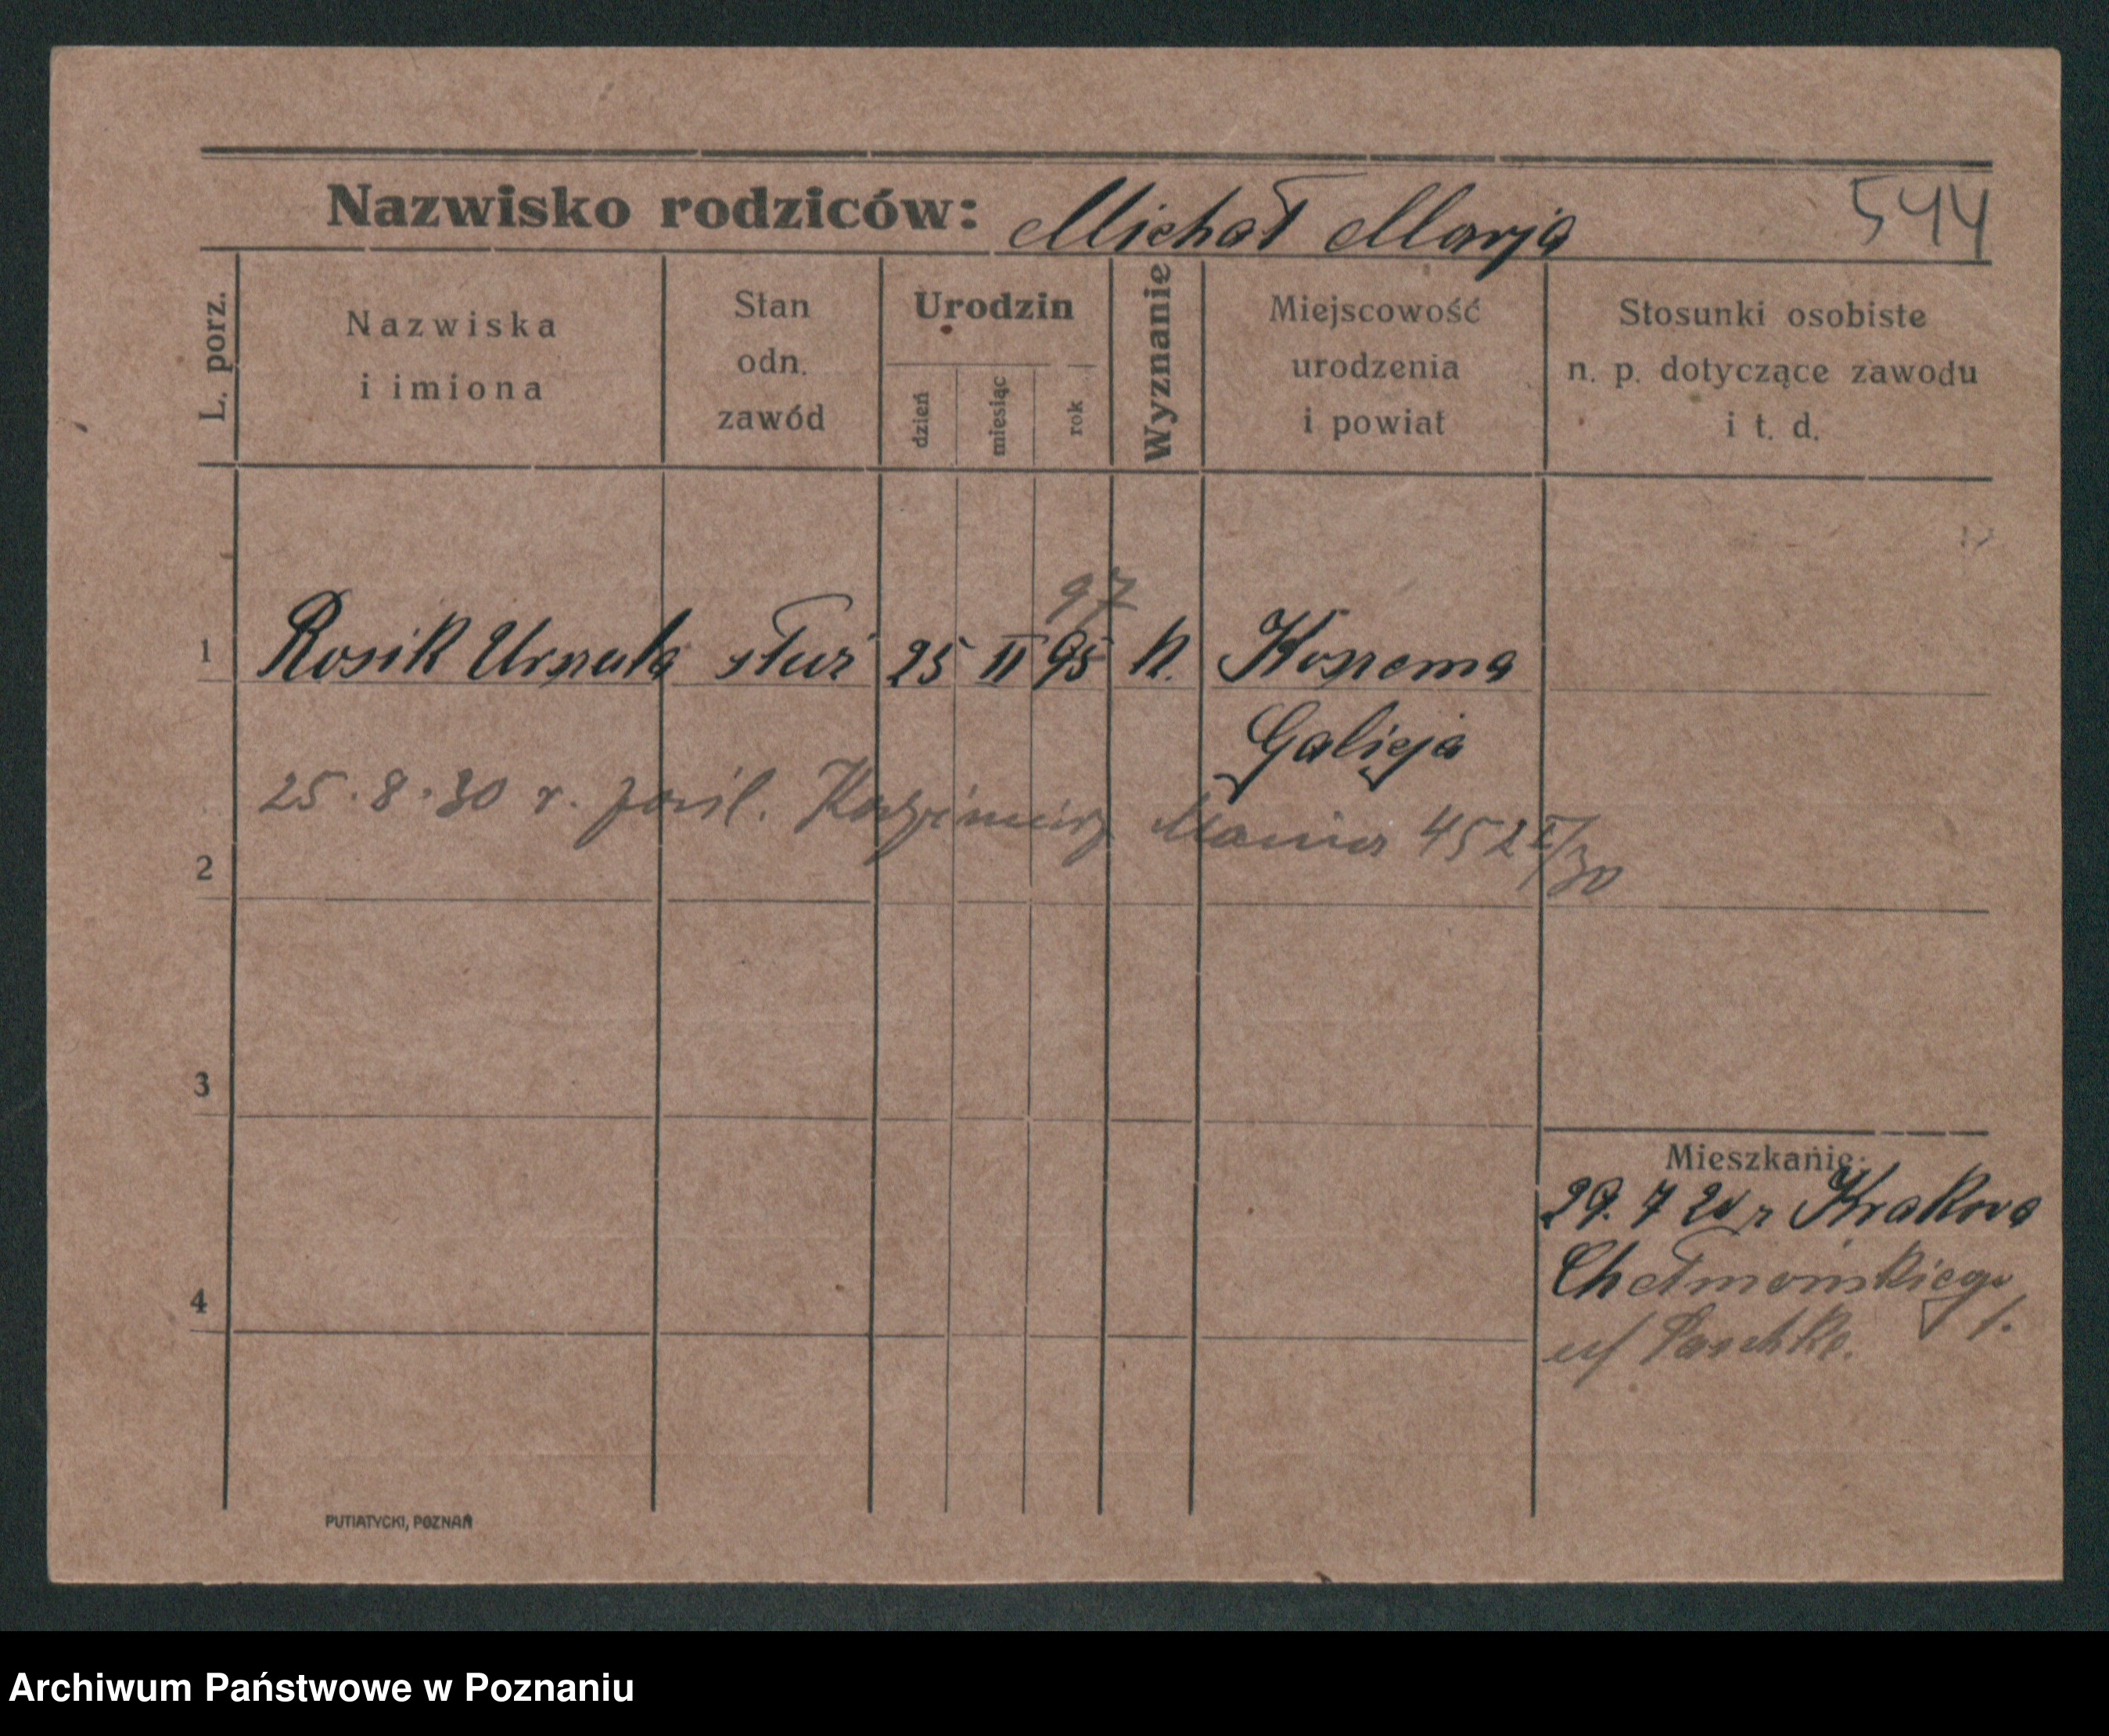 Nazwisko rodziców: Michał Marja 544
L. porz.
Nazwiska
i imiona
Stan
odn.
zawód
Urodzin
dzień
miesiąc
rok
Wyznanie
Miejscowość
urodzenia
i powiat
Stosunki osobiste
n. p. dotyczące zawodu
i t. d.
97
1 Rosik Urszula służ 25 II 95 k.
Galicja
25.8.30 r. Kazimierz 452
2
3
4
Mieszkanie:
29. 7 Krakowa
Chełmońskiego
PUTIATYCKI, POZNAŃ
Archiwum Państwowe w Poznaniu